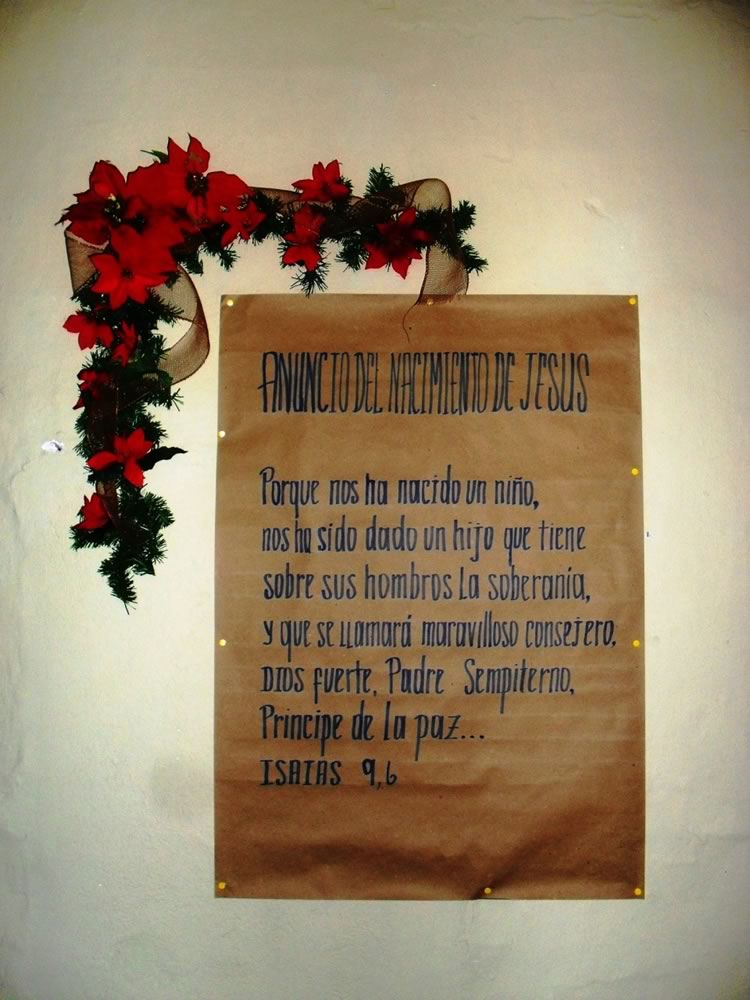 ANUNCIO DEL NACIMIENTO DE JESUS
Porque nos ha nacido un niño,
nos ha sido dado un hijo que tiene
sobre sus hombros la soberanía,
y que se llamará maravilloso consejero,
Dios fuerte, Padre Sempiterno,
Principe de la paz...
ISAIAS 9,6